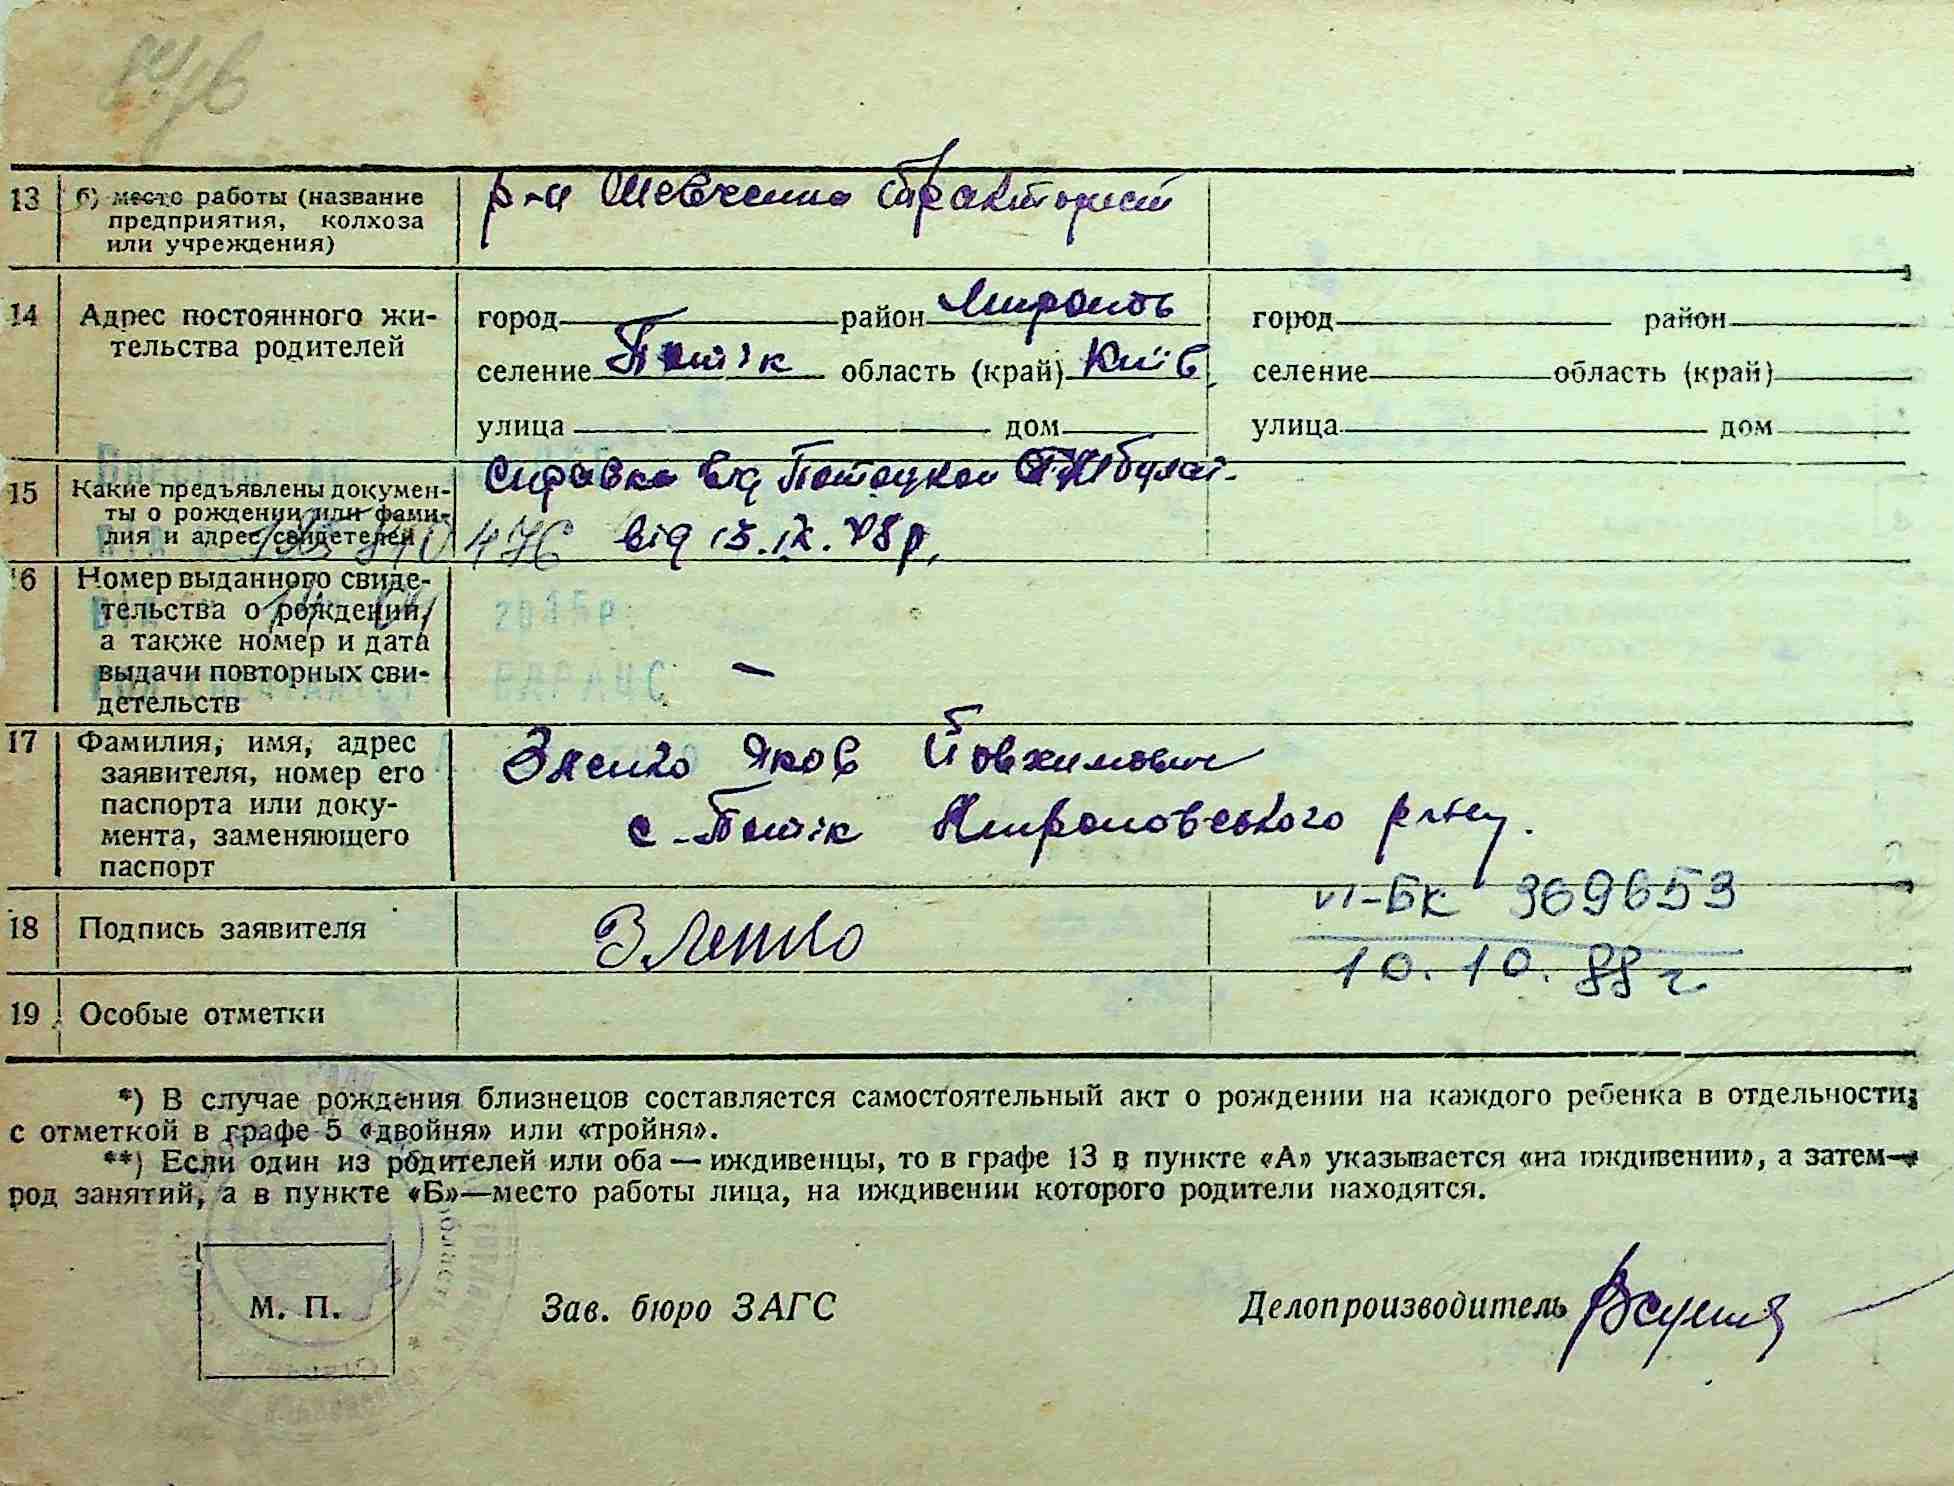 13 б) место работы (название
предприятия, колхоза
или учреждения)
Шевченко тракторист
14 Адрес постоянного жи-
тельства родителей
город район Миронов
селение Потік область (край) Київ
улица дом
город район
селение область (край)
улица дом
15 Какие предъявлены докумен-
ты о рождении или фами-
лия и адрес свидетелей
Справка від Потоцкой
476 від 15.IX.48р.
16 Номер выданного свиде-
тельства о рождении,
а также номер и дата
выдачи повторных сви-
детельств
—
2015р.
17 Фамилия, имя, адрес
заявителя, номер его
паспорта или доку-
мента, заменяющего
паспорт
Зленко Яков Йовхимович
с. Потік Мироновського р-ну.
18 Подпись заявителя
Зленко
VI-БК 369653
10.10.88 г
19 Особые отметки
*) В случае рождения близнецов составляется самостоятельный акт о рождении на каждого ребенка в отдельности;
с отметкой в графе 5 «двойня» или «тройня».
**) Если один из родителей или оба — иждивенцы, то в графе 13 в пункте «А» указывается «на иждивении», а затем—
род занятий, а в пункте «Б»—место работы лица, на иждивении которого родители находятся.
М. П.
Зав. бюро ЗАГС
Делопроизводитель